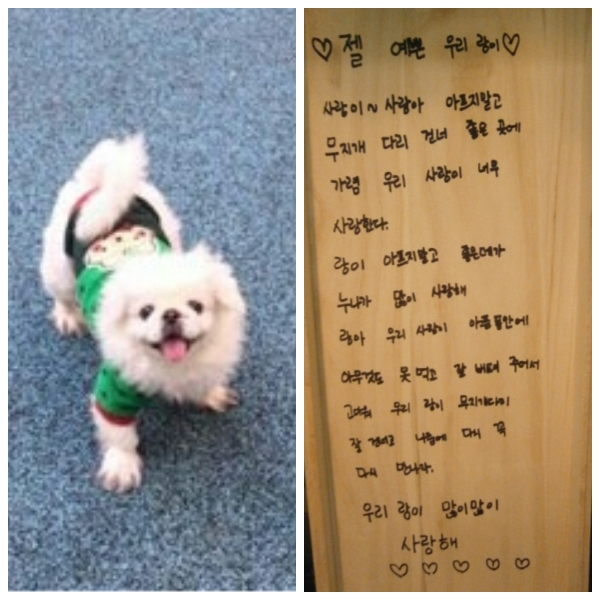 ♡젤 예쁜 우리 랑이♡
사랑이~ 사랑아 아프지말고
무지개 다리 건너 좋은 곳에
가렴 우리 사랑이 너무
사랑한다.
랑이 아프지말고 좋은데가
누나가 많이 사랑해
랑아 우리 사랑이 아픔몸안에
아무것도 못 먹고 잘 버텨 주어서
고마워 우리 랑이 무지개다리
잘 건너고 나중에 다시 꼭
다시 만나자.
우리 랑이 많이많이
사랑해
♡ ♡ ♡ ♡ ♡